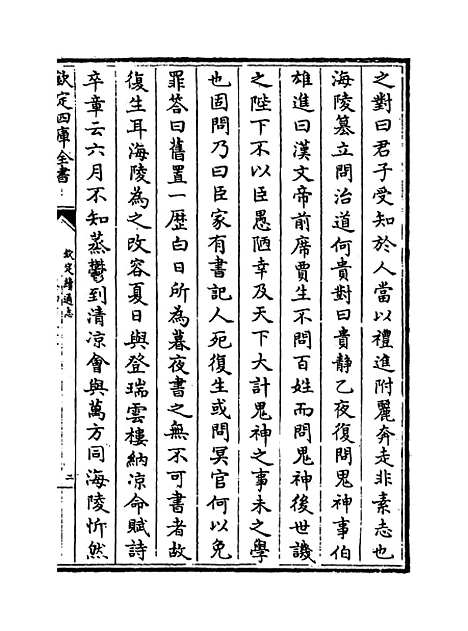 之對曰君子受知於人當以禮進附麗奔走非素志也
海陵簒立問治道何貴對曰貴靜乙夜復問鬼神事伯
雄進曰漢文帝前席賈生不問百姓而問鬼神後世譏
之陛下不以臣愚陋幸及天下大計鬼神之事未之學
也固問乃曰臣家有書記人死復生或問冥官何以免
罪答曰舊置一歴白日所為暮夜書之無不可書者故
復生耳海陵為之改容夏日與登瑞雲樓納凉命賦詩
卒章云六月不知蒸鬱到清凉會與萬方同海陵忻然
欽定四庫全書
欽定續通志
二